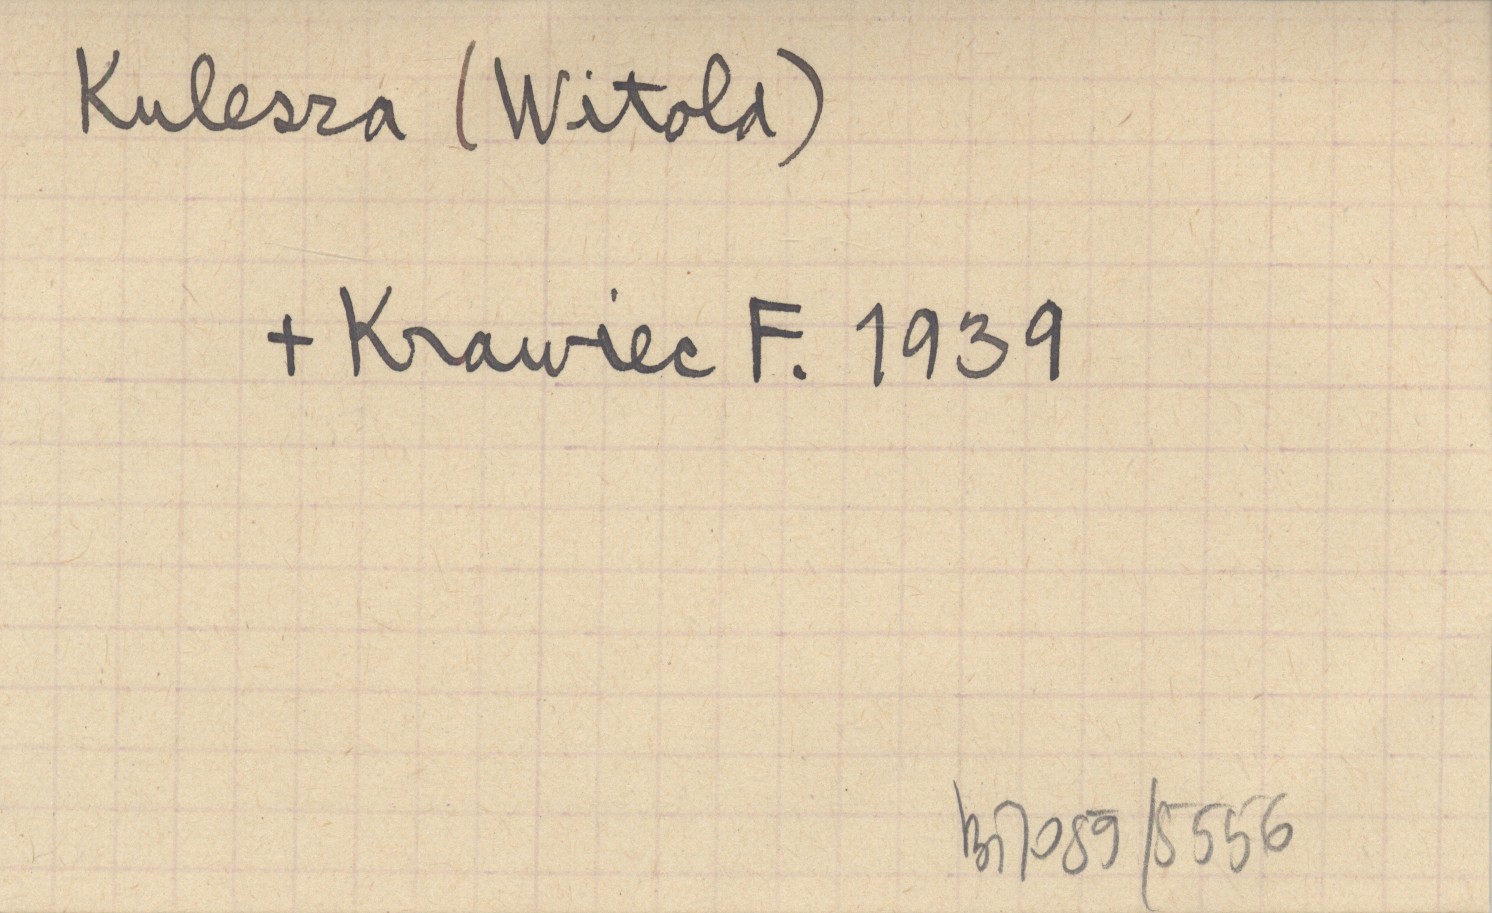 Kulesza (Witold)
+ Krawiec F. 1939
/5556